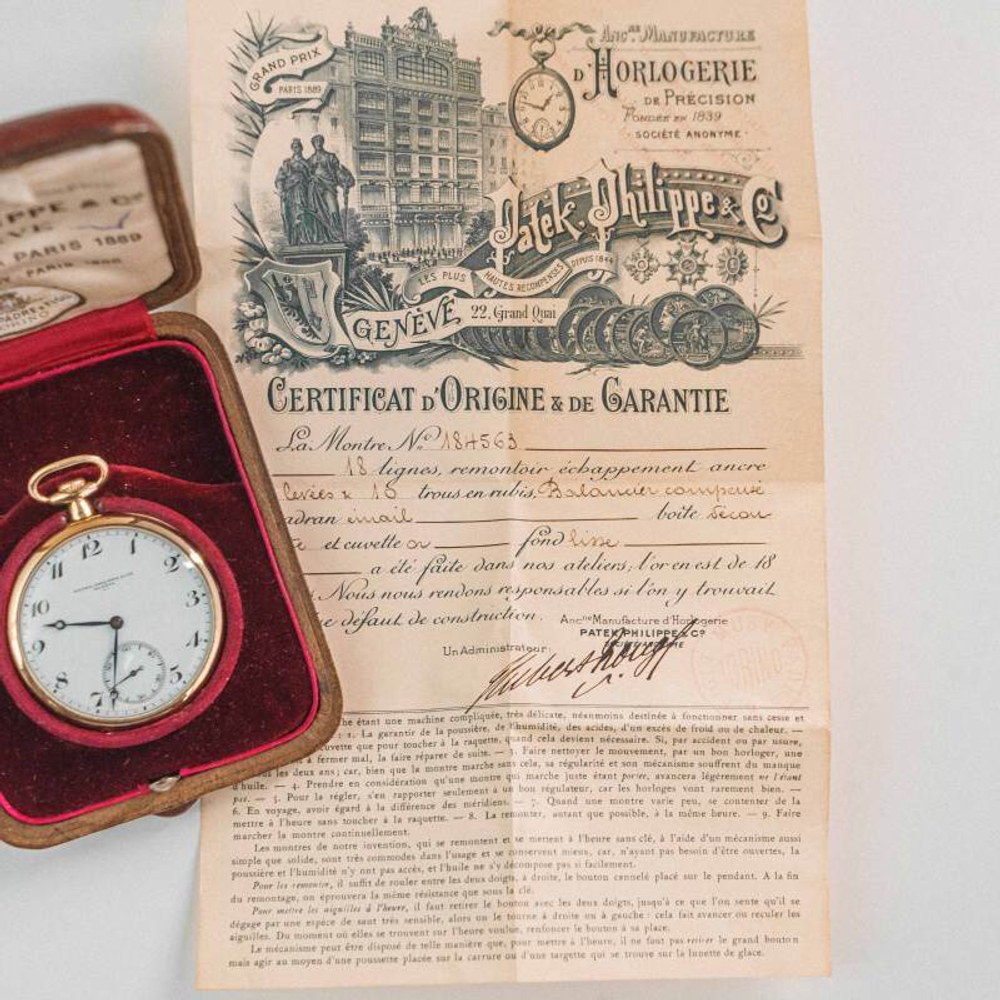 GRAND PRIX
PARIS 1889
ANC.NE MANUFACTURE
D'HORLOGERIE
DE PRÉCISION
FONDÉE EN 1839
SOCIÉTÉ ANONYME
Patek, Philippe & Co
LES PLUS HAUTES RECOMPENSES DEPUIS 1844
GENÈVE 22, Grand Quai
CERTIFICAT D'ORIGINE & DE GARANTIE
La Montre No 184563
18 lignes, remontoir échappement ancre
levées x 10 trous en rubis, Balancier compensé
adran émail boîte
et cuvette or fond lisse
a été faite dans nos ateliers; l'or en est de 18
Nous nous rendons responsables si l'on y trouvait
défaut de construction.
Ancne Manufacture d'Horlogerie
PATEK PHILIPPE & Co
SOCIÉTÉ ANONYME
Un Administrateur:
he étant une machine compliquée, très délicate, néanmoins destinée à fonctionner sans cesse et
: 1. La garantir de la poussière, de l'humidité, des acides, d'un excés de froid ou de chaleur. —
cuvette que pour toucher à la raquette, quand cela devient nécessaire. Si, par accident ou par usure,
à fermer mal, la faire réparer de suite. — 3. Faire nettoyer le mouvement, par un bon horloger, une
les deux ans; car, bien que la montre marche sans cela, sa régularité et son mécanisme souffrent du manque
d'huile. — 4. Prendre en considération qu'une montre qui marche juste étant portée, avancera légèrement ne l'étant
pas. — 5. Pour la régler, s'en rapporter seulement à un bon régulateur, car les horloges vont rarement bien. —
6. En voyage, avoir égard à la différence des méridiens. — 7. Quand une montre varie peu, se contenter de la
mettre à l'heure sans toucher à la raquette. — 8. La remonter, autant que possible, à la même heure. — 9. Faire
marcher la montre continuellement.
Les montres de notre invention, qui se remontent et se mettent à l'heure sans clé, à l'aide d'un mécanisme aussi
simple que solide, sont très commodes dans l'usage et se conservent mieux, car, n'ayant pas besoin d'être ouvertes, la
poussière et l'humidité n'y ont pas accès, et l'huile ne s'y décompose pas si facilement.
Pour les remonter, il suffit de rouler entre les deux doigts, à droite, le bouton cannelé placé sur le pendant. A la fin
du remontage, on éprouvera la même résistance que sous la clé.
Pour mettre les aiguilles à l'heure, il faut retirer le bouton avec les deux doigts, jusqu'à ce que l'on sente qu'il se
dégage par une espèce de saut très sensible, alors on le tourne à droite ou à gauche: cela fait avancer ou reculer les
aiguilles. Du moment où elles se trouvent sur l'heure voulue, renfoncer le bouton à sa place.
Le mécanisme peut être disposé de telle manière que, pour mettre à l'heure, il ne faut pas retirer le grand bouton
mais agir au moyen d'une poussette placée sur la carrure ou d'une targette qui se trouve sur la lunette de glace.
PPE & Co
PARIS 1889
12 1 2 3 4 5 7 8 9 10 11